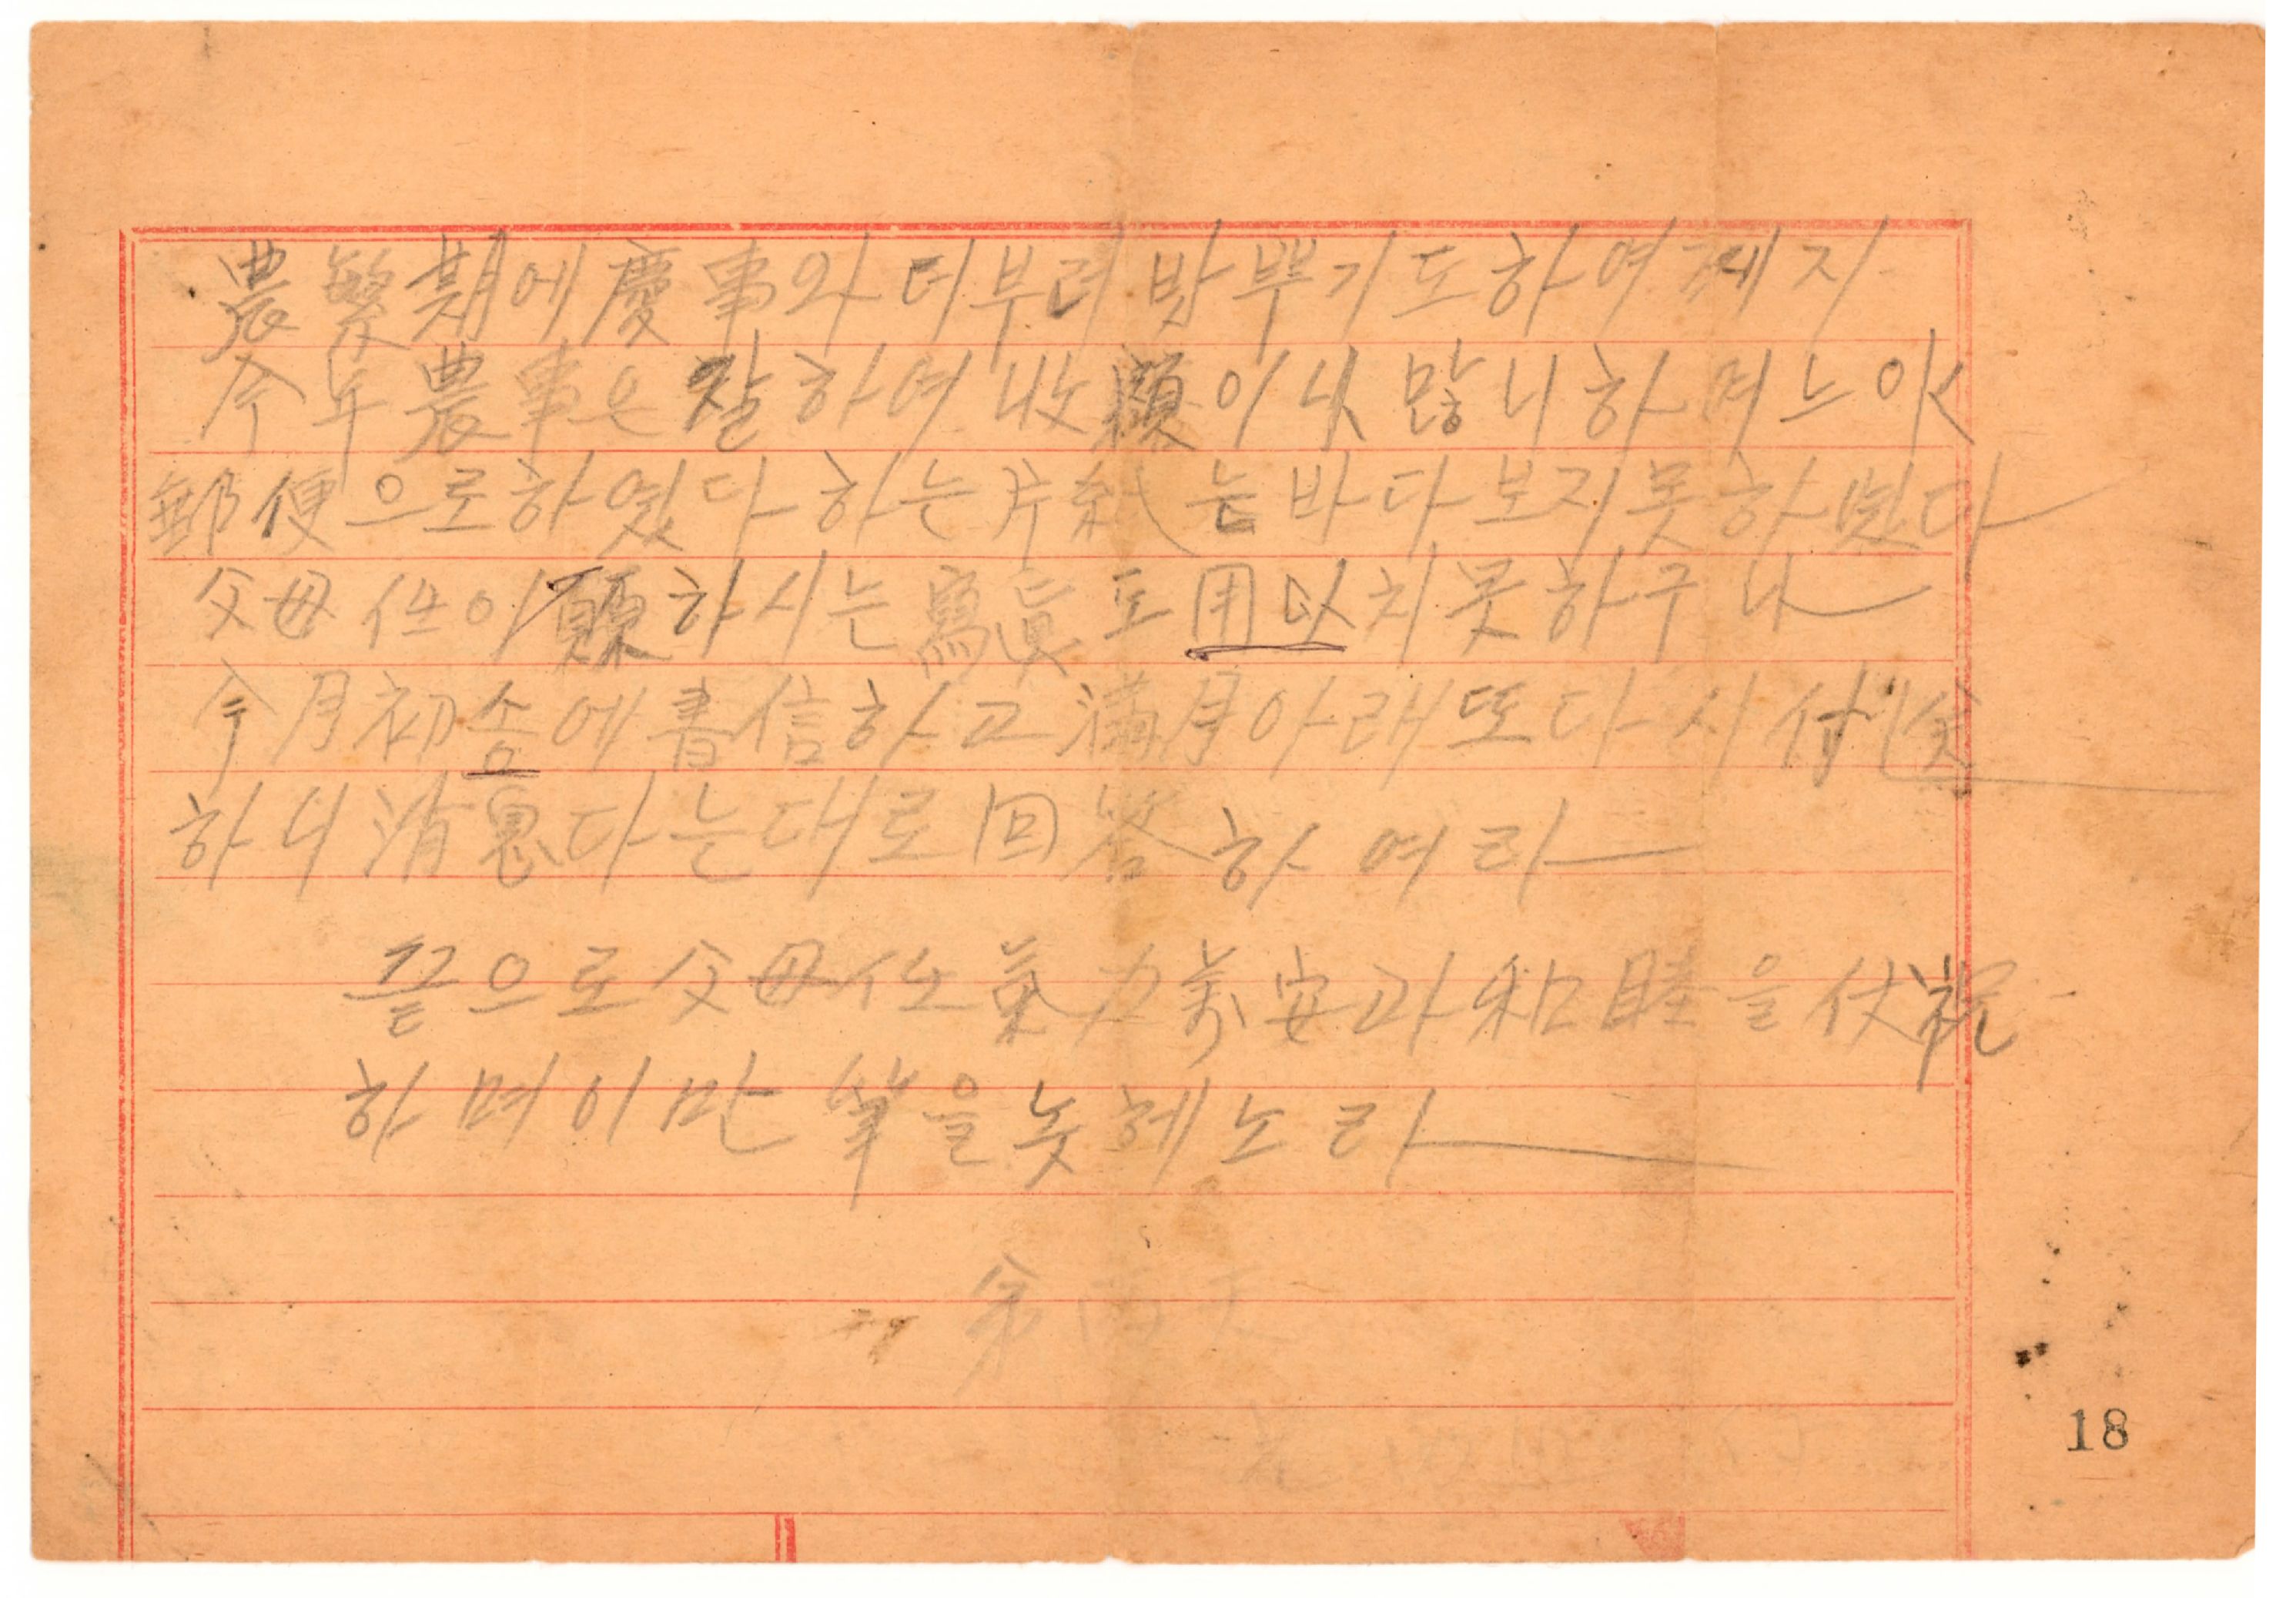 農繁期에慶事와 더부러 밧뿌기도하여겠지
今年農事은 잘하여 收穎이나 많니하며느야
郵便으로하였다하는片紙는바다보지못하였다
父母任이願하시는寫眞도用以치못하구나
今月初슴에書信하고滿月아래또다시付送
하니消息다는대로回答하여라
끝으로父母任氣力萬安과和睦을伏祝
하며이만筆을놋헤노라
18